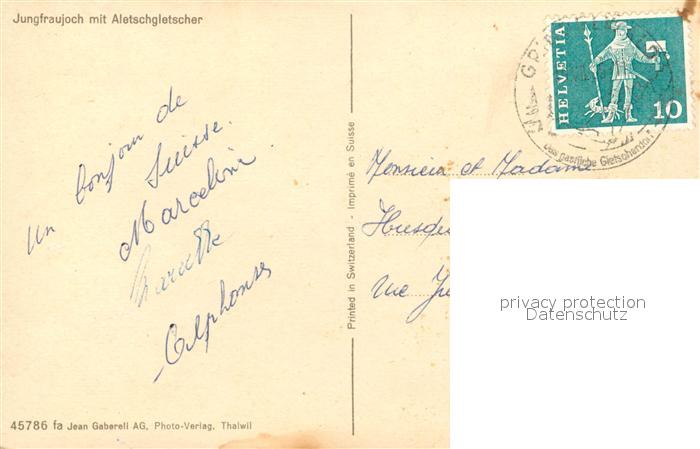 Jungfraujoch mit Aletschgletscher
HELVETIA
10
Das gastliche Gletscherdorf
un bonjour de
Suisse.
Marceline
Alphonse
Printed in Switzerland - Imprimé en Suisse
Monsieur et Madame
rue
privacy protection
Datenschutz
45786 fa Jean Gaberell AG, Photo-Verlag, Thalwil